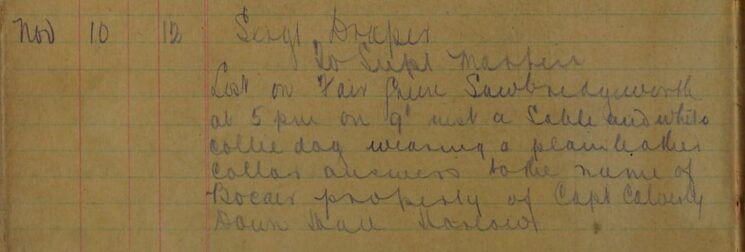 Nov 10 12 Sergt Draper
To Supt
Lost on Fair Green Sawbridgeworth
at 5 pm on 9th inst a Sable and white
collie dog wearing a plain leather
collar answers to the name of
property of Capt
Down Hall Harlow